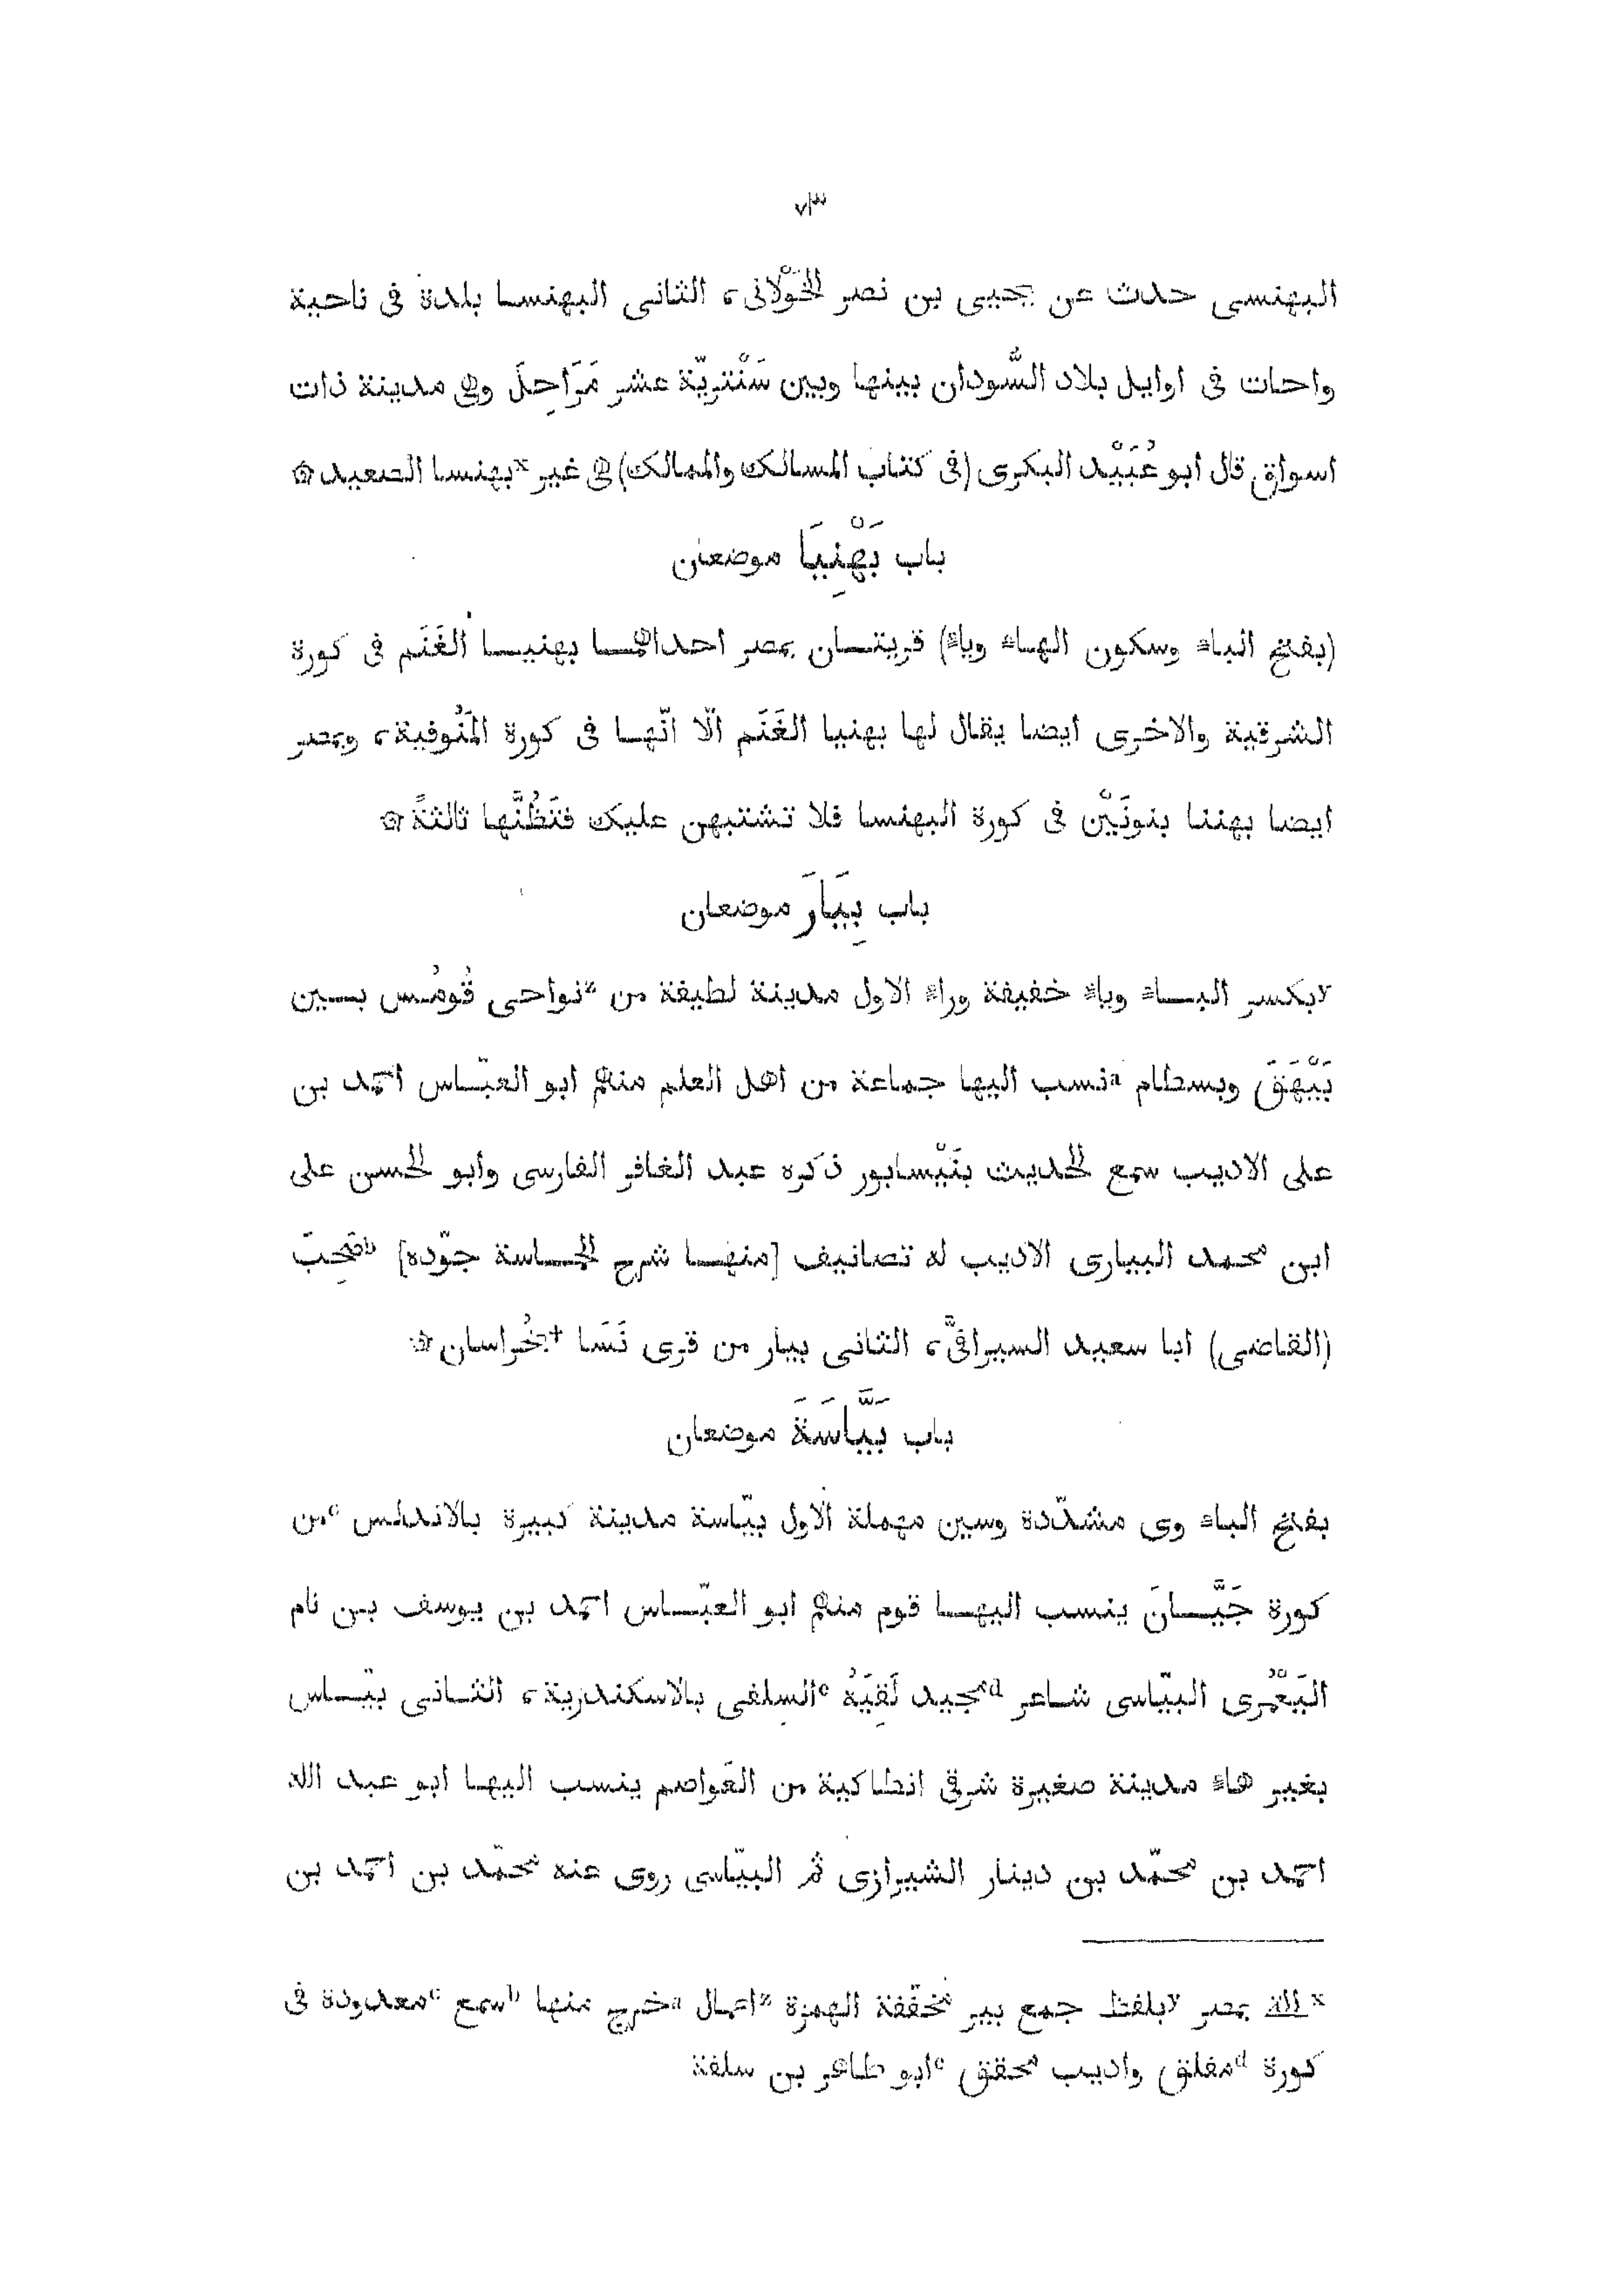 ٧٣
البهنسى حدث عن يحيى بن نصر الخَوْلانى، الثانى البهنسا بلدة فى ناحية
واحات فى اوايل بلاد السُّودان بينها وبين سَنْتريّة عشر مَرَاحِلَ وهى مدينة ذات
اسواق قال ابو عُبَيْد البكرى (فى كتاب المسالك والممالك) هى غير ˣبهنسا الصعيد۞
باب بَهْنِيَا موضعان
(بفتح الباء وسكون الهاء وياء) قريتان بمصر احداهما بهنيا الغَنَم فى كورة
الشرقية والاخرى ايضا يقال لها بهنيا الغَنَم الّا انّها فى كورة المَنُوفية، وبمصر
ايضا بهننا بنونَيْن فى كورة البهنسا فلا تشتبهن عليك فتَظُنَّها ثالثةً۞
باب بِيَارَ موضعان
ʸبكسر الباء وياء خفيفة وراء الاول مدينة لطيفة من ᶻنواحى قُومُس بين
بَيْهَقَ وبسطام ᵃنسب اليها جماعة من اهل العلم منهم ابو العبّاس احمد بن
على الاديب سمع الحديث بنَيْسابور ذكره عبد الغافر الفارسى وابو الحسن على
ابن محمد البيارى الاديب له تصانيف [منها شرح الحماسة جوّده] ᵇصَحِبَ
(القاضى) ابا سعيد السيرافىَّ، الثانى بيار من قرى نَسَا †بخُراسان۞
باب بَيَّاسَةَ موضعان
بفتح الباء وى مشدّدة وسين مهملة الاول بيّاسة مدينة كبيرة بالاندلس ᶜمن
كورة جَيَّانَ ينسب اليها قوم منهم ابو العبّاس احمد بن يوسف بن نام
اليَعْمُرى البيّاسى شاعر ᵈمجيد لَقِيَهُ ᵉالسِلفى بالاسكندرية، الثانى بيّاس
بغير هاء مدينة صغيرة شرقى انطاكية من العَواصم ينسب اليها ابو عبد الله
احمد بن محمّد بن دينار الشيرازى ثم البيّاسى روى عنه محمّد بن احمد بن
ˣالتى بمصر ʸبلفظ جمع بير مخفّفة الهمزة ᶻاعمال ᵃخرج منها ᵇسمع ᶜمعدودة فى
كورة ᵈمفلق واديب محقق ᵉابو طاهر بن سلفة